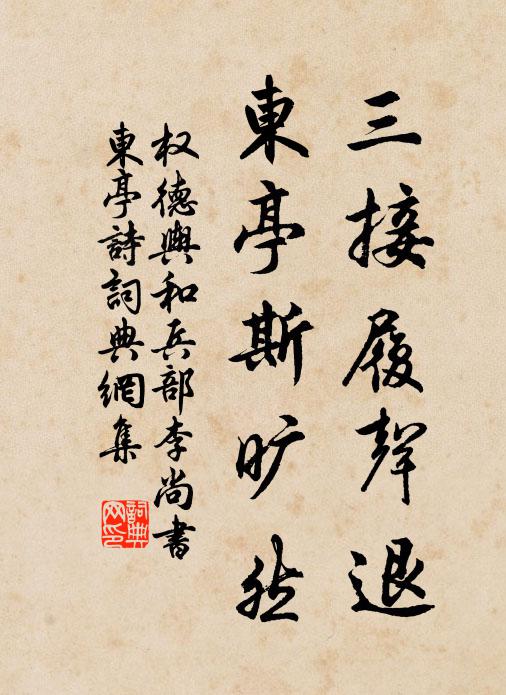 三接履聲退
東亭斯旷然
权德輿和兵部李尚書
東亭詩詞典網集
詞典
网印